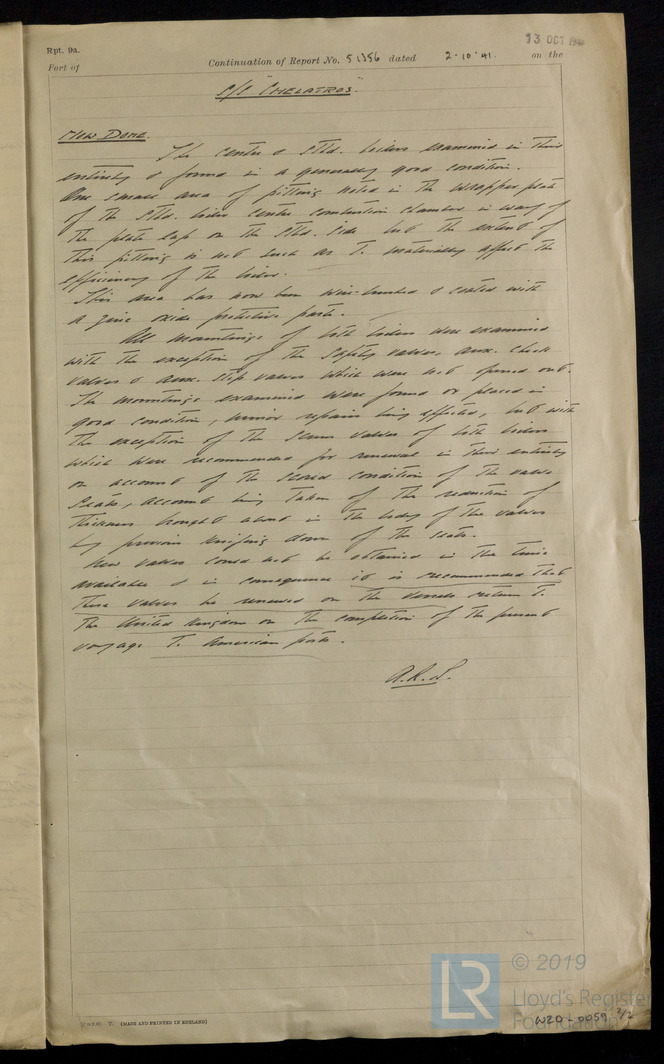 Rpt. 9a.
13 OCT
Port of
Continuation of Report No. 51356 dated 2-10-41. on the
S/S "CHELATROS".
Now Done.
The centre & Stbd. boilers examined in their
entirety & found in a generally good condition.
One small area of pitting noted in the wrapper plate
of the Stbd. boiler centre combustion chamber in way of
the plate lap on the Stbd. side but the extent of
this pitting is not such as to materially affect the
efficiency of the boiler.
This area has now been wire-brushed & coated with
a zinc oxide protective paste.
All mountings of both boilers were examined
with the exception of the Safety valves, aux. check
valves & aux. stop valves which were not opened out.
The mountings examined were found or placed in
good condition, minor repairs being effected, but with
the exception of the valves of both boilers
which were recommended for renewal in their entirety
on account of the scored condition of the valve
seats, account being taken of the reduction of
thickness brought about in the body of the valves
by previous truing down of the seats.
New valves could not be obtained in the time
available & in consequence it is recommended that
these valves be renewed on the vessels return to
the United Kingdom on the completion of the present
voyage to American ports.
A.R.S.
T. (MADE AND PRINTED IN ENGLAND)
LR
© 2019
Lloyd's Register
Foundation
W20-0059 2/2